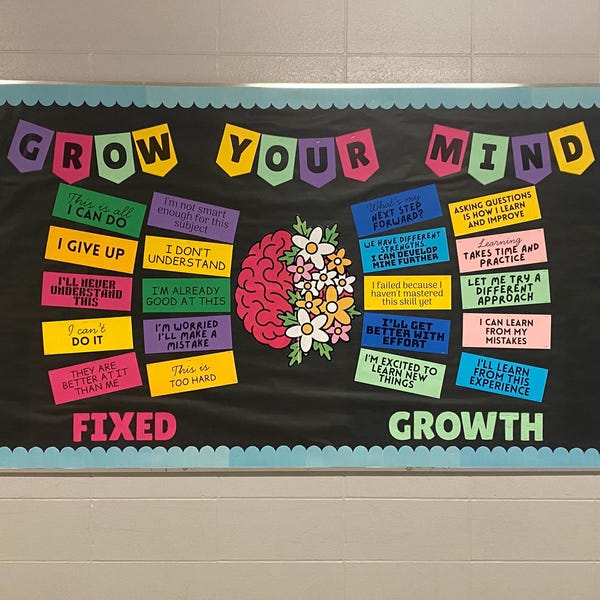 GROW YOUR MIND
This is all
I CAN DO
I'm not smart
enough for this
subject
I GIVE UP
I DON'T
UNDERSTAND
I'LL NEVER
UNDERSTAND
THIS
I'M ALREADY
GOOD AT THIS
I can't
DO IT
I'M WORRIED
I'LL MAKE A
MISTAKE
THEY ARE
BETTER AT IT
THAN ME
This is
TOO HARD
FIXED
What's my
NEXT STEP
FORWARD?
ASKING QUESTIONS
IS HOW I LEARN
AND IMPROVE
WE HAVE DIFFERENT
STRENGTHS.
I CAN DEVELOP
MINE FURTHER
Learning
TAKES TIME AND
PRACTICE
I failed because I
haven't mastered
this skill yet
LET ME TRY A
DIFFERENT
APPROACH
I'LL GET
BETTER WITH
EFFORT
I CAN LEARN
FROM MY
MISTAKES
I'M EXCITED TO
LEARN NEW
THINGS
I'LL LEARN
FROM THIS
EXPERIENCE
GROWTH